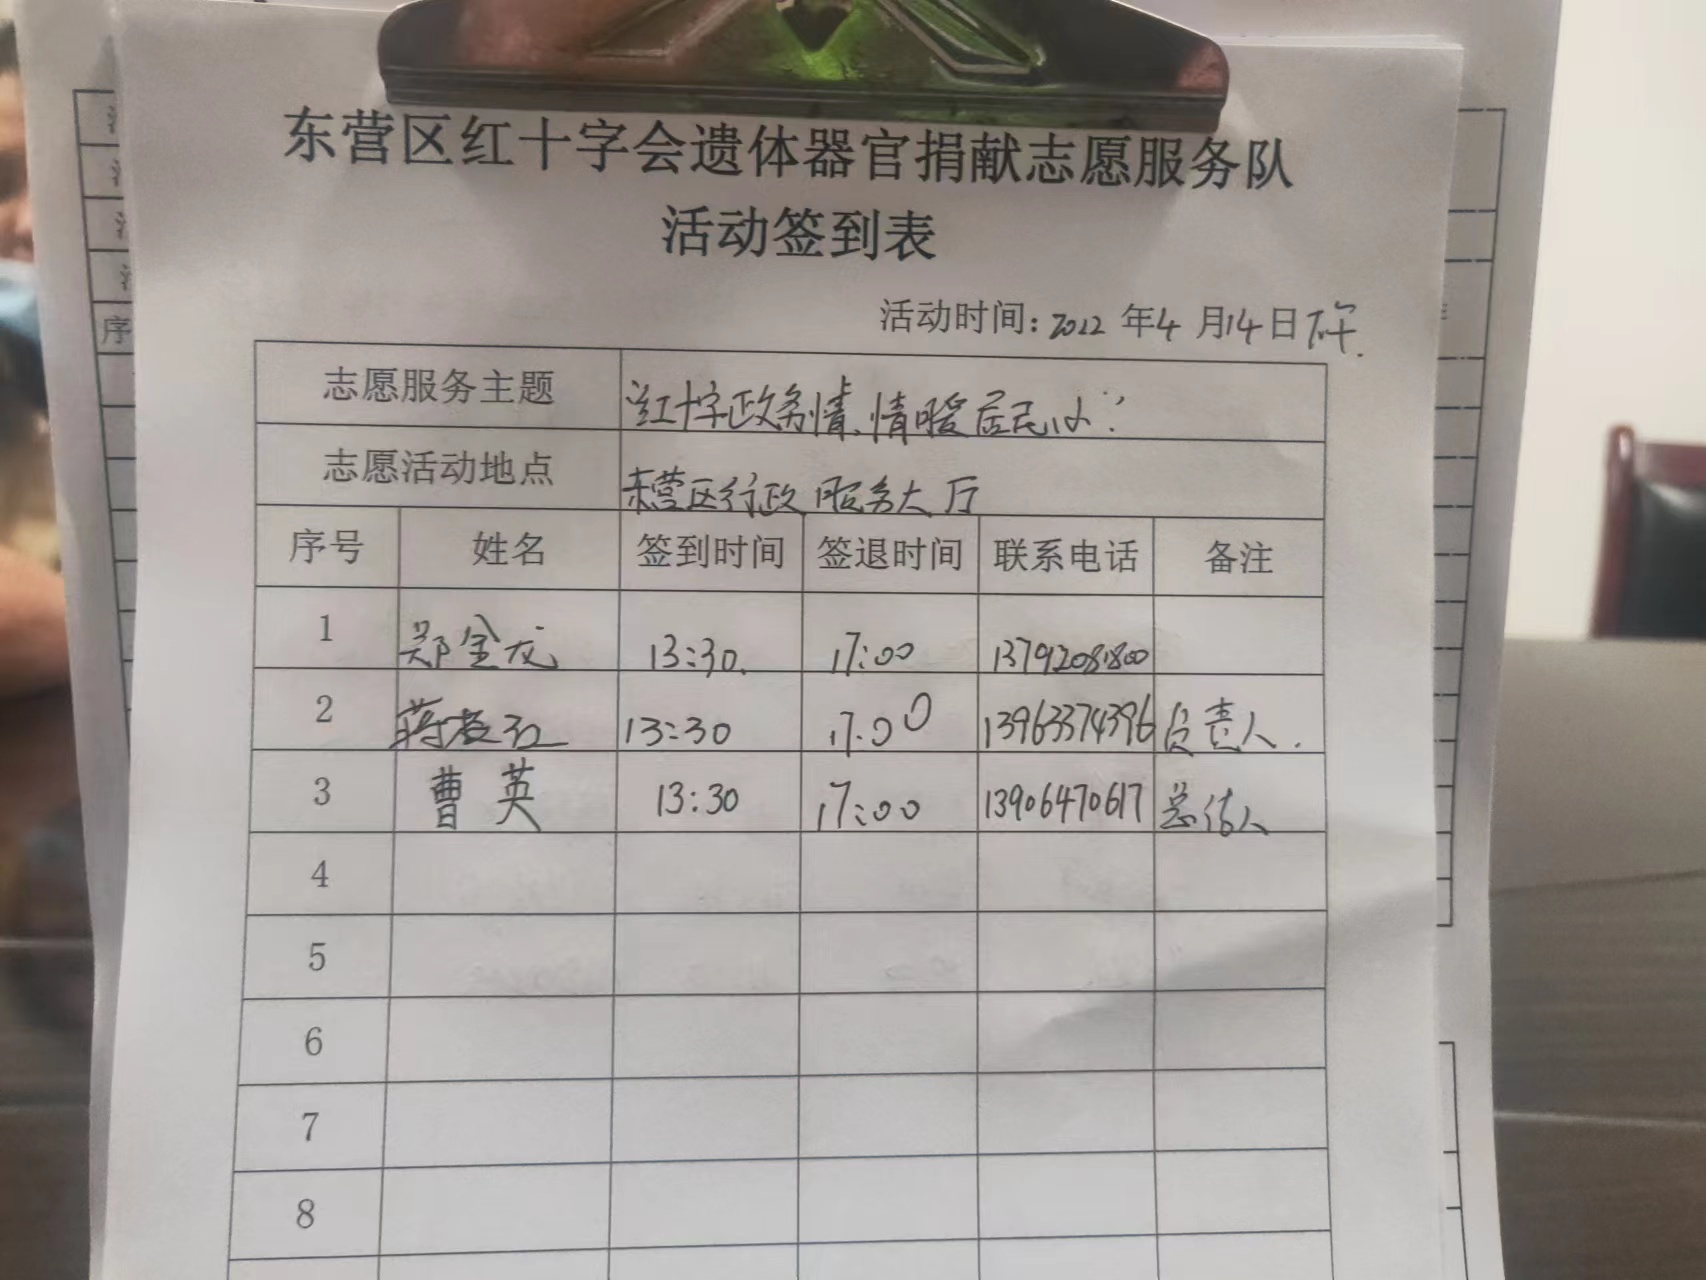 东营区红十字会遗体器官捐献志愿服务队
活动签到表
活动时间：2022 年 4 月 14 日 下午.
志愿服务主题 “红十字政务情、情暖居民心”
志愿活动地点 东营区行政服务大厅
序号 姓名 签到时间 签退时间 联系电话 备注
1 郑金龙 13:30. 17:00 13792081800
2 蒋 红 13:30 17:00 13963374396 负责人.
3 曹英 13:30 17:00 13906470617 总结人
4
5
6
7
8
序